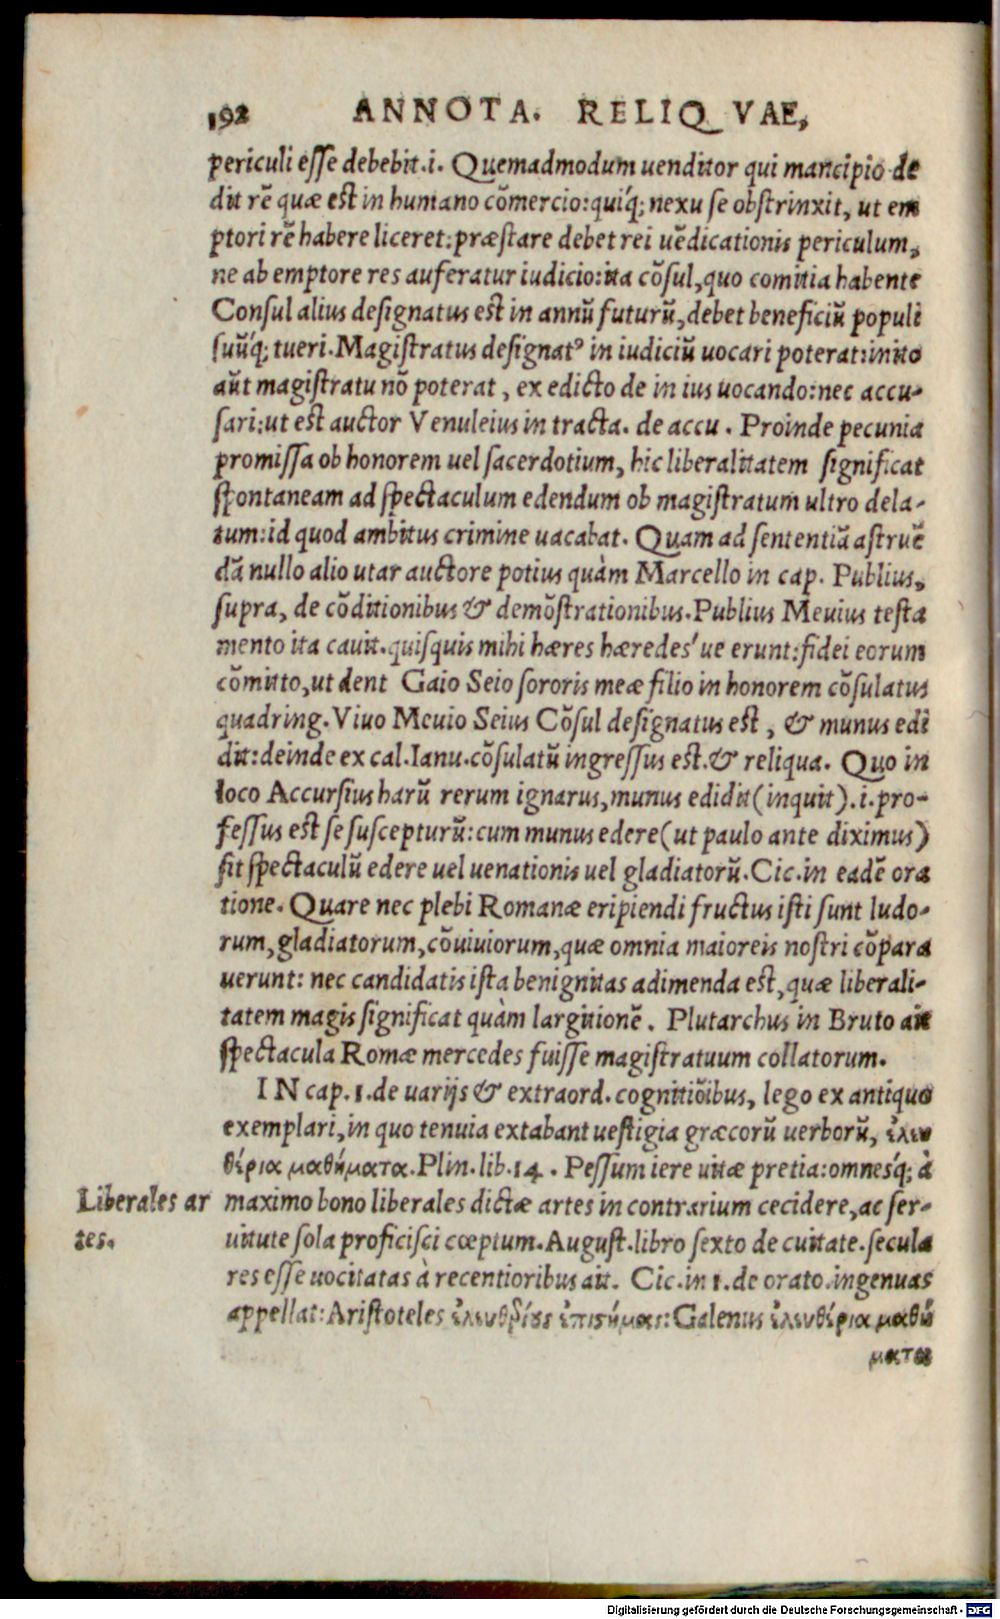 192 ANNOTA. RELIQVAE,
periculi esse debebit.i. Quemadmodum uenditor qui mancipio de
dit rē quæ est in humano cōmercio:quiq́; nexu se obstrinxit, ut em
ptori rē habere liceret:præstare debet rei uēdicationis periculum,
ne ab emptore res auferatur iudicio:ita cōsul,quo comitia habente
Consul alius designatus est in annū futurū,debet beneficiū populi
suūq́; tueri.Magistratus designatꝰ in iudiciū uocari poterat:inito
aūt magistratu nō poterat, ex edicto de in ius uocando:nec accu-
sari:ut est auctor Venuleius in tracta. de accu. Proinde pecunia
promissa ob honorem uel sacerdotium, hic liberalitatem significat
spontaneam ad spectaculum edendum ob magistratum ultro dela-
tum:id quod ambitus crimine uacabat. Quam ad sententiā astruē
dā nullo alio utar auctore potius quàm Marcello in cap. Publius,
supra, de cōditionibus & demōstrationibus.Publius Meuius testa
mento ita cauit.quisquis mihi hæres hæredes'ue erunt:fidei eorum
cōmitto,ut dent Gaio Seio sororis meæ filio in honorem cōsulatus
quadring. Viuo Meuio Seius Cōsul designatus est, & munus edi
dit:deinde ex cal.Ianu.cōsulatū ingressus est.& reliqua. Quo in
loco Accursius harū rerum ignarus,munus edidit(inquit).i.pro-
fessus est se suscepturū:cum munus edere(ut paulo ante diximus)
sit spectaculū edere uel uenationis uel gladiatorū.Cic.in eadē ora
tione. Quare nec plebi Romanæ eripiendi fructus isti sunt ludo-
rum,gladiatorum,cōuiuiorum,quæ omnia maioreis nostri cōpara
uerunt: nec candidatis ista benignitas adimenda est,quæ liberali-
tatem magis significat quàm largitionē. Plutarchus in Bruto ait
spectacula Romæ mercedes fuisse magistratuum collatorum.
IN cap.1.de uarijs & extraord.cognitiōibus, lego ex antiquo
exemplari,in quo tenuia extabant uestigia græcorū uerborū, ἐλευ
θέρια μαθήματα.Plin.lib.14. Pessum iere uitæ pretia:omnesq́; à
Liberales ar maximo bono liberales dictæ artes in contrarium cecidere,ac ser-
tes. uitute sola proficisci cœptum.August.libro sexto de ciuitate.secula
res esse uocitatas à recentioribus ait. Cic.in 1.de orato.ingenuas
appellat:Aristoteles ἐλευθέρας ἐπιστήμας:Galenus ἐλευθέρια μαθή
ματα
Digitalisierung gefördert durch die Deutsche Forschungsgemeinschaft - DFG